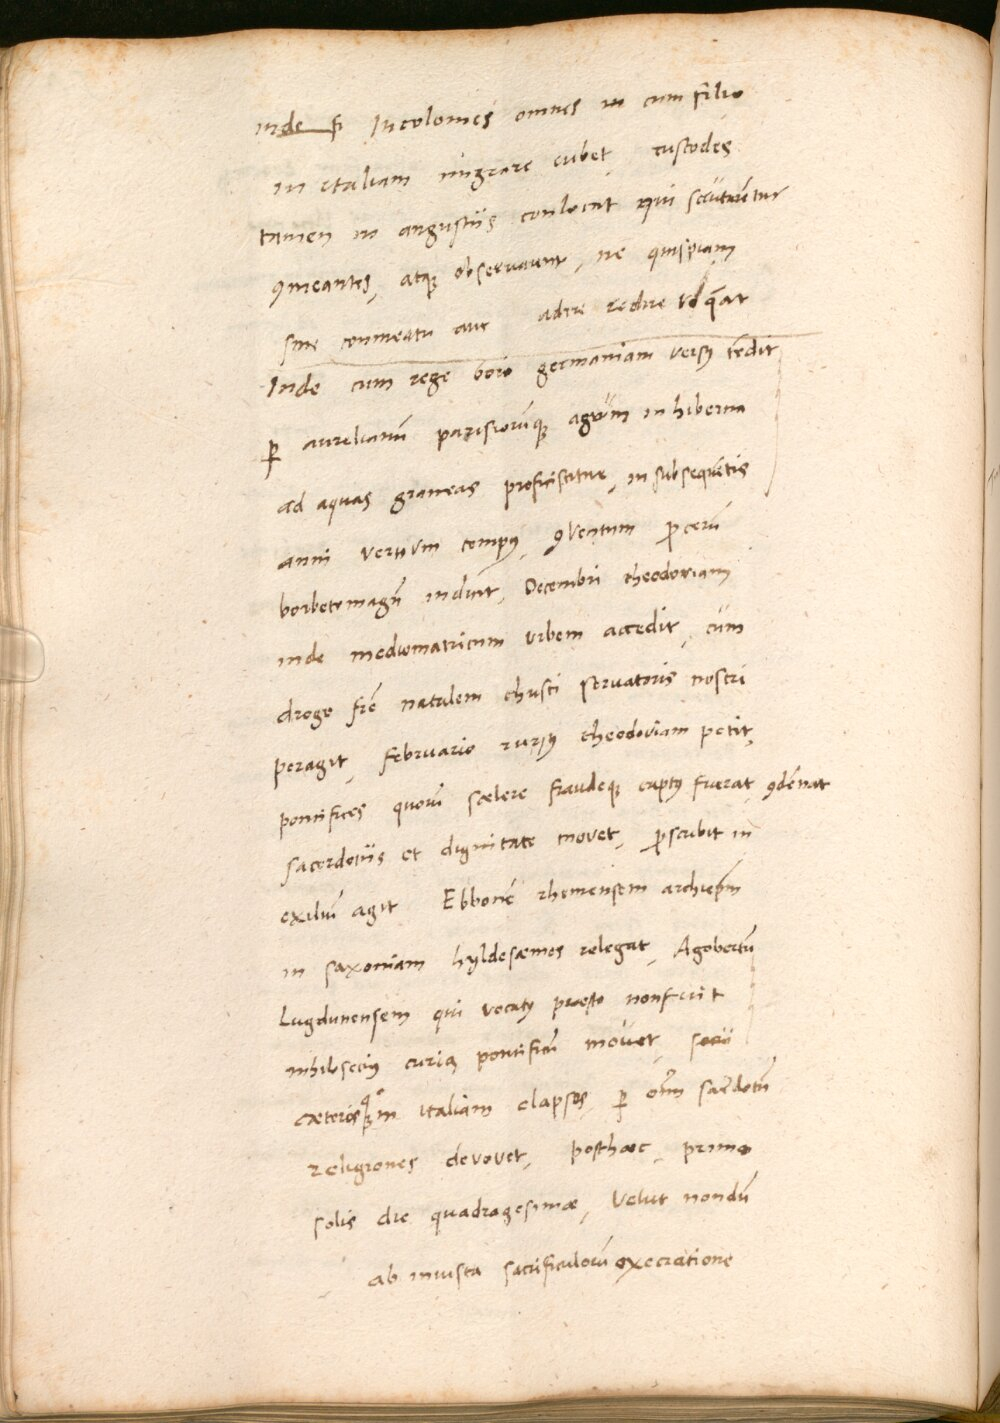 inde fi Incolomes omnes in cum filio
in italiam migrare iubet, custodes
tamen in angustiis conlocat qui scrutarentur
ꝯmeantes, atqꝫ observarent, ne quispiam
sine conmeatu aut adire redire vꝉ q̄at
Inde cum rege boio germaniam versꝯ tēdit
ꝑ aurelianū parisiorūqꝫ agrūm in hiberna
ad aquas graneas proficiscitur, in subsequētis
anni vernum tempꝯ, ꝯventum ꝓcerū
borbetomagū indicit, Decembri theodoviam
inde mediomatricum urbem accedit, cūm
drogo frē natalem christi servatoris nostri
peragit, februario rursꝯ theodoviam petit,
pontifices quorū scelere fraudeqꝫ captꝯ fuerat, ꝯdēnat
sacerdotiis et dignitate movet, ꝓscribit in
exiliū agit Ebbonē rhemensem archiepm̄
in saxoniam hyldesæmos relegat, Agobertū
Lugdunensem qui vocatꝯ præsto non fuit
nihilosecius curia pontificū movet,
cæteros in italiam elapsos, ꝑ om̄m sacerdotū
religiones devovet, posthæc, prima
solis die quadragesimæ, velut nondū
ab iniusta sacrificulorū execratione